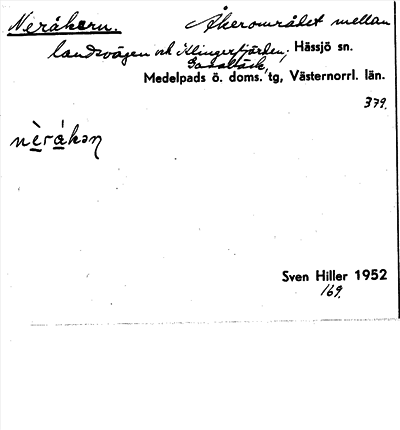 Neråkern. Åkerområdet mellan
landsvägen och Klingerfjärden, Hässjö sn.
Medelpads ö. doms. tg, Västernorrl. län.
379.
nè̱rá̱kəɳ
Sven Hiller 1952
169.